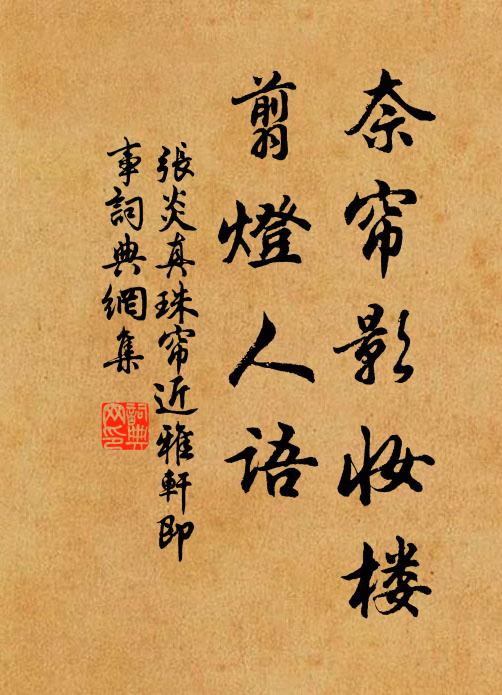 奈帘影妆楼
翦燈人语
張炎真珠帘近雅軒即
事詞典網集
詞典
网印